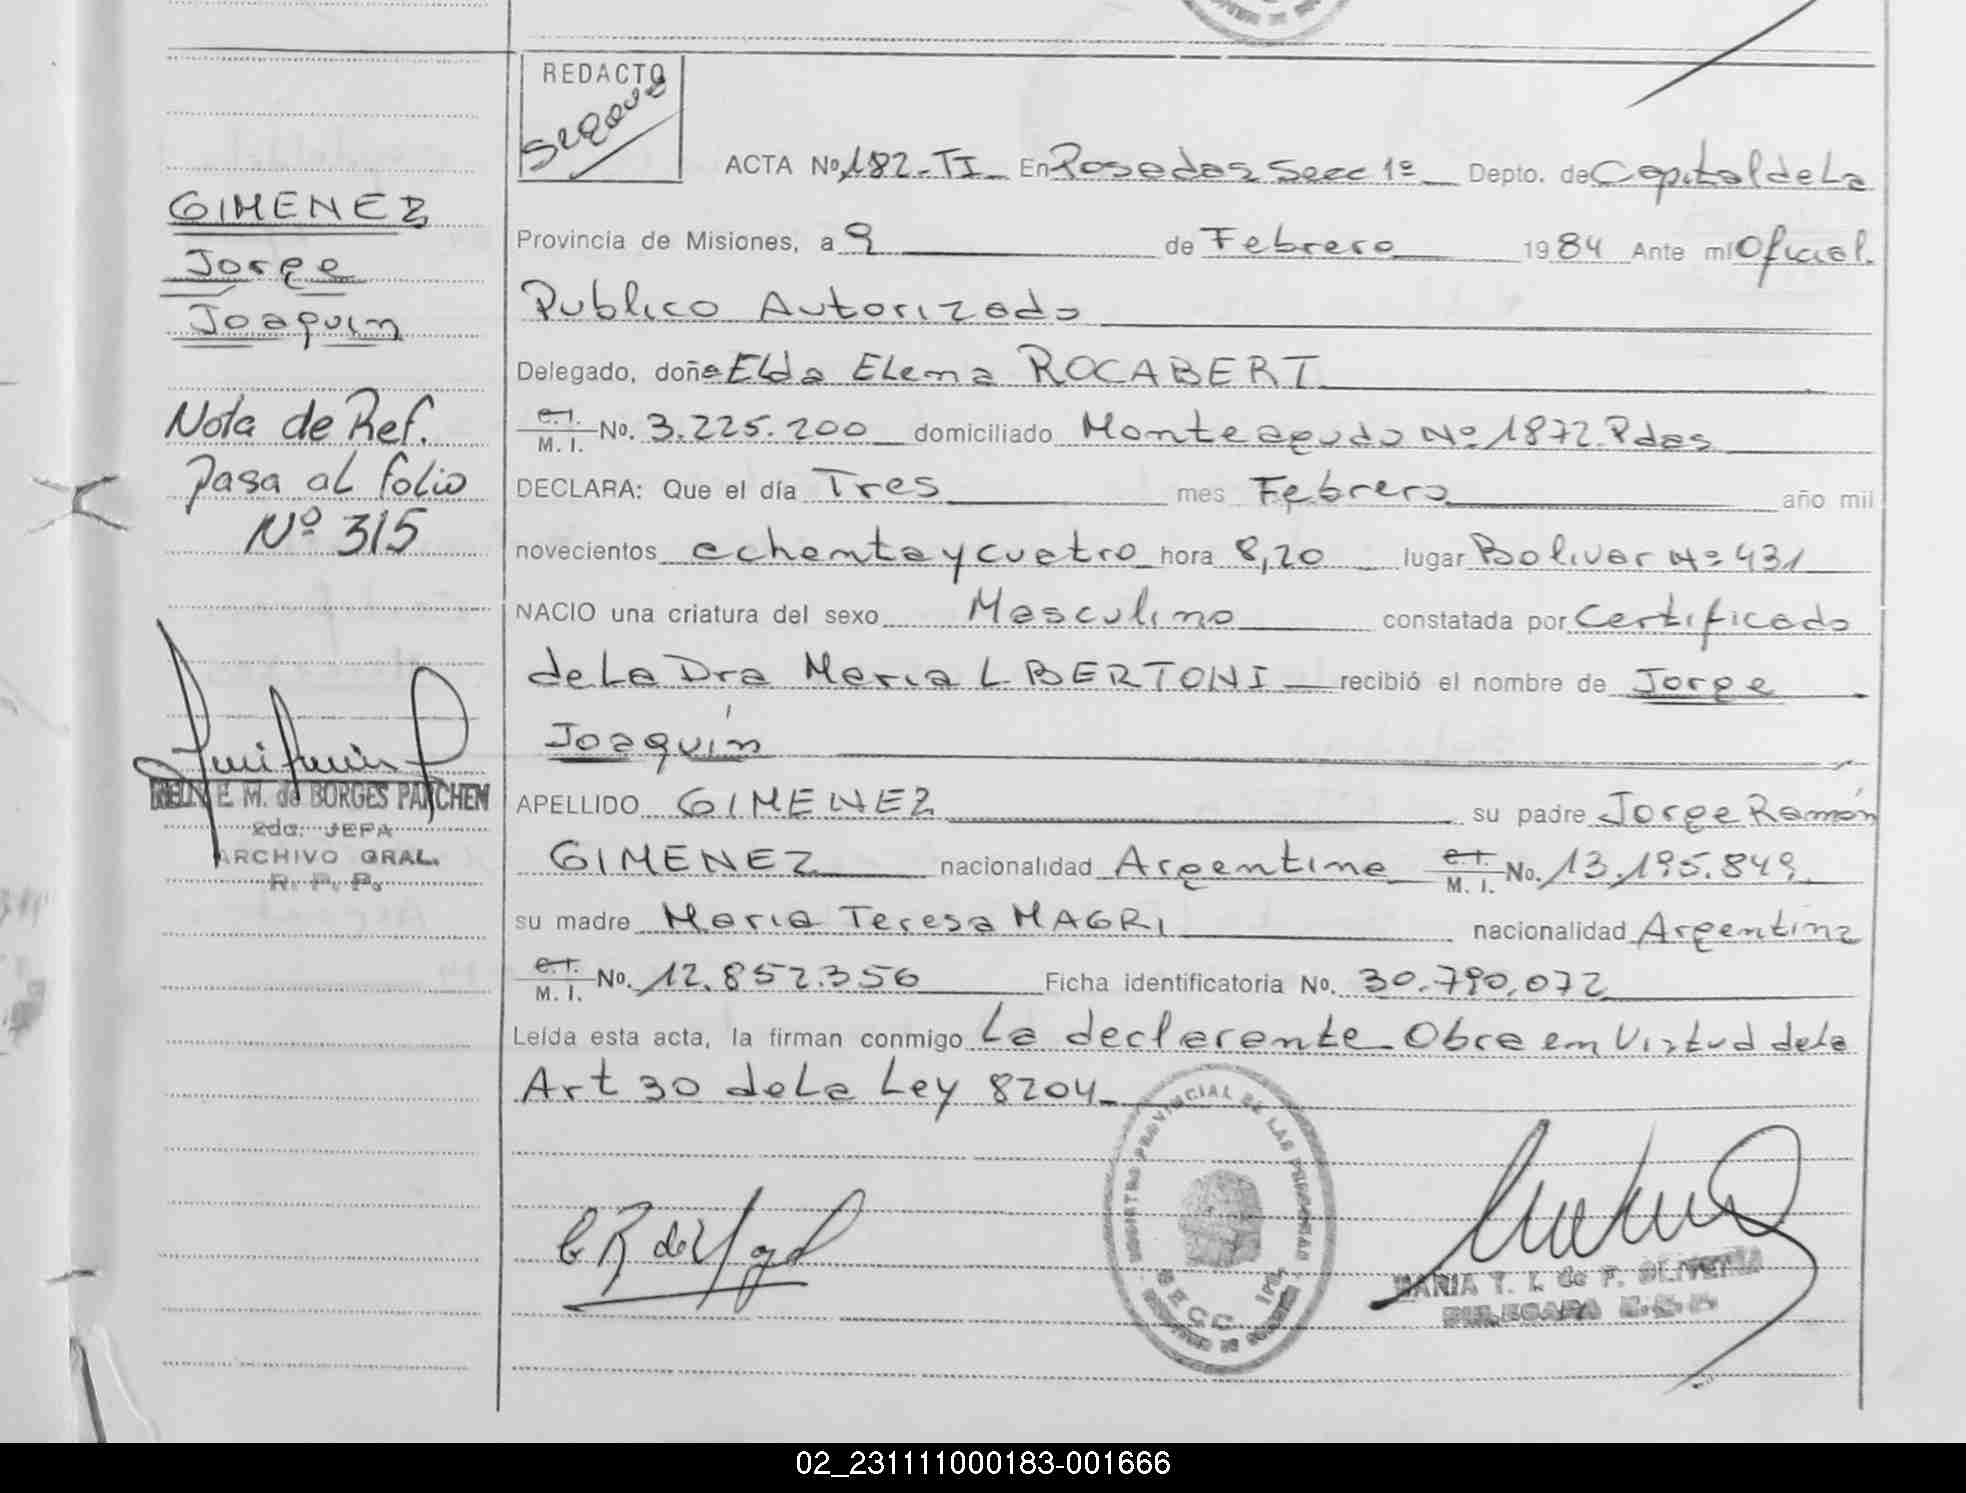 REDACTO
ACTA No. 182-TI En Posadas Secc 1º Depto. de Capital de La
GIMENEZ
Provincia de Misiones, a 9 de Febrero 1984 Ante mi Oficial
Jorge
Publico Autorizado
Joaquin
Delegado, doña Elda Elena ROCABERT
Nota de Ref.
C.I. M. I. No. 3.225.200 domiciliado Monteagudo Nº 1872 Pdas
pasa al folio
DECLARA: Que el día Tres mes Febrero año mil
Nº 315
novecientos ochenta y cuatro hora 8,20 lugar Bolivar Nº 431
NACIO una criatura del sexo Masculino constatada por Certificado
de La Dra Maria L BERTONI recibió el nombre de Jorge
Joaquín
E. M. de BORGES PATCHEM
APELLIDO GIMENEZ su padre Jorge Ramón
2da. JEFA
ARCHIVO GRAL.
R. P. P.
GIMENEZ nacionalidad Argentina C.I. M. I. No. 13.195.849
su madre Maria Teresa MAGRI nacionalidad Argentina
C.I. M. I. No. 12.852.356 Ficha identificatoria No. 30.790.072
Leída esta acta, la firman conmigo La declarante Obra en Virtud de la
Art 30 de La Ley 8204
REGISTRO PROVINCIAL DE LAS PERSONAS
SECC. 1ra.
MARIA T. I. de F. OLIVEIRA
DELEGADA
02_231111000183-001666